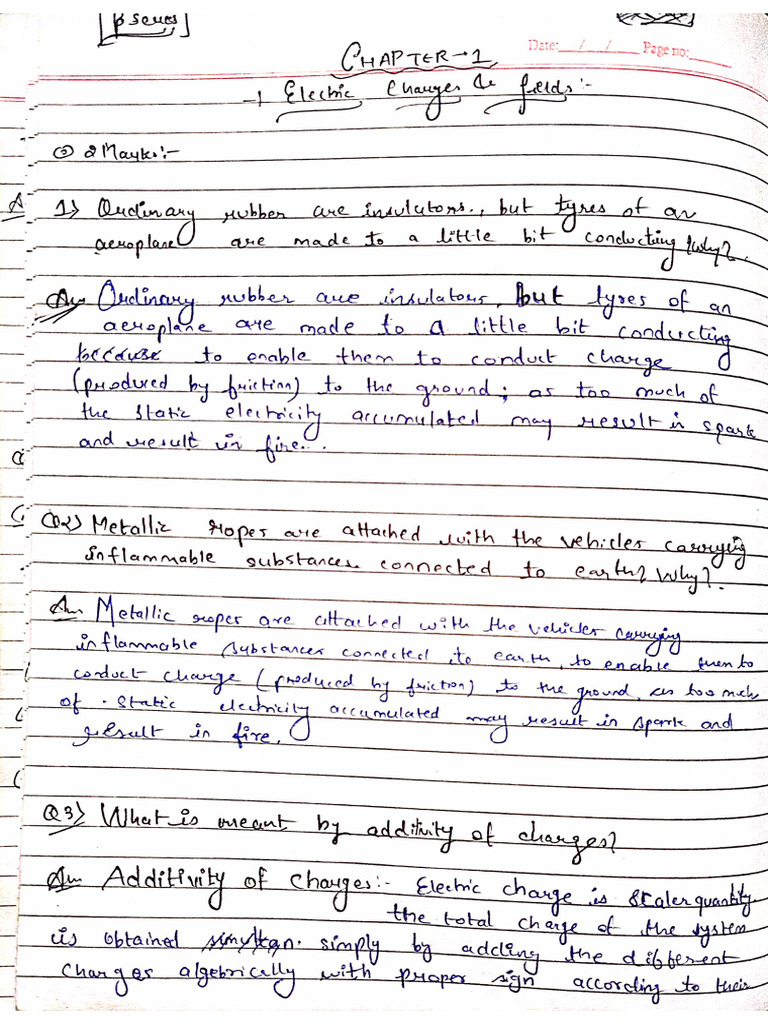 β Series
Date:__/__/__ Page no:____
CHAPTER → 1
→ Electric Charges & fields:-
2 Marks:-
1) Ordinary rubber are insulators., but tyres of an
aeroplane are made to a little bit conducting. Why?.
Ans Ordinary rubber are insulators, but tyres of an
aeroplane are made to a little bit conducting
because to enable them to conduct charge
(produced by friction) to the ground; as too much of
the static electricity accumulated may result in spark
and result in fire...
Q2) Metallic ropes are attached with the vehicles carrying
inflammable substances connected to earth? Why?.
Ans Metallic ropes are attached with the vehicles carrying
inflammable substances connected to earth, to enable them to
conduct charge (produced by friction) to the ground, as too much
of static electricity accumulated may result in spark and
result in fire.
Q3) What is meant by additivity of charges?
Ans Additivity of Charges:- Electric charge is scaler quantity.
the total charge of the system
is obtained simply by adding the different
charges algebrically with proper sign according to their